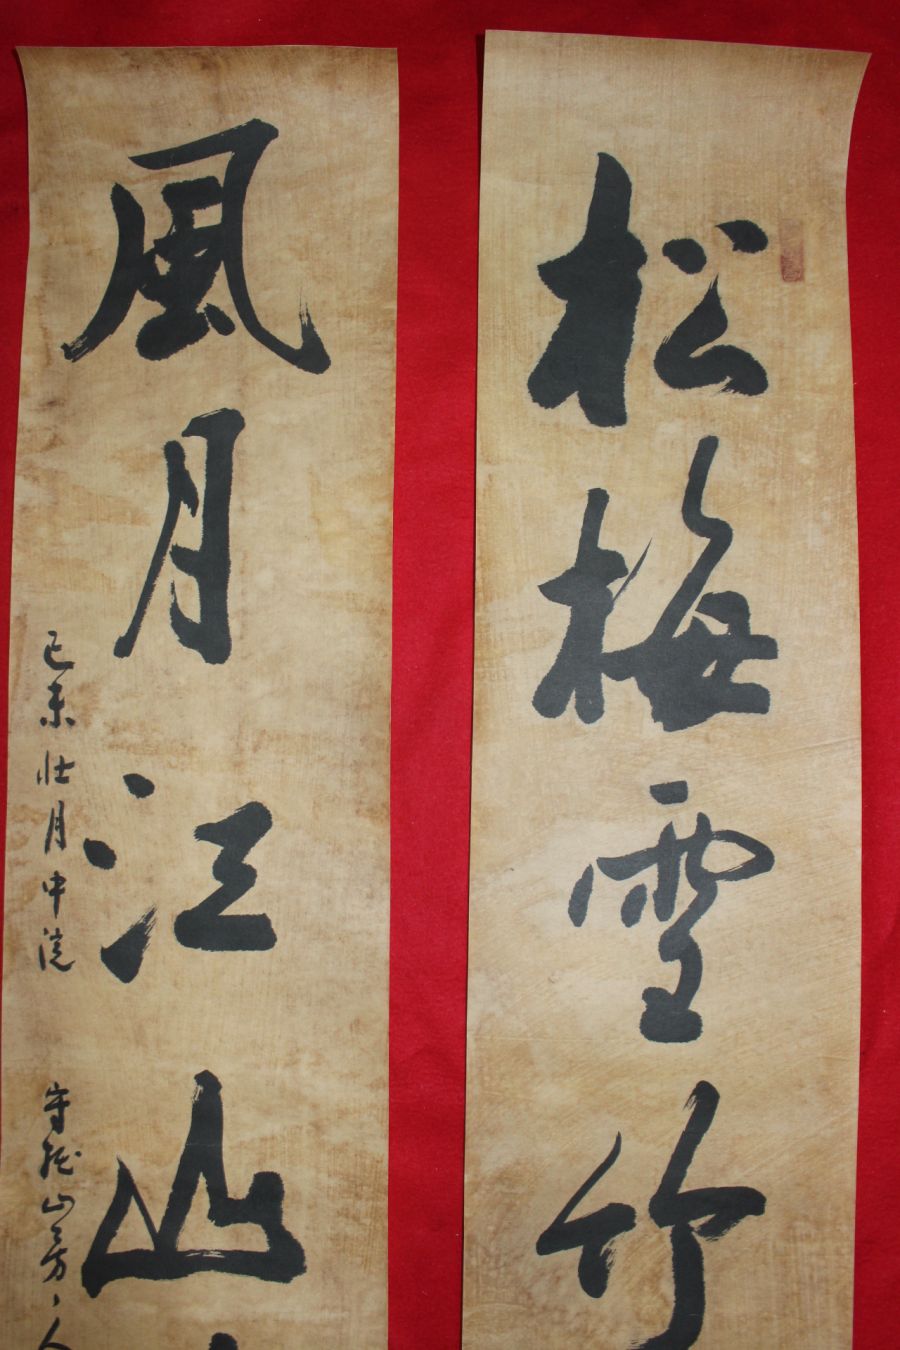 松梅雪竹
風月江山
己未壮月中浣
守拙山房主人